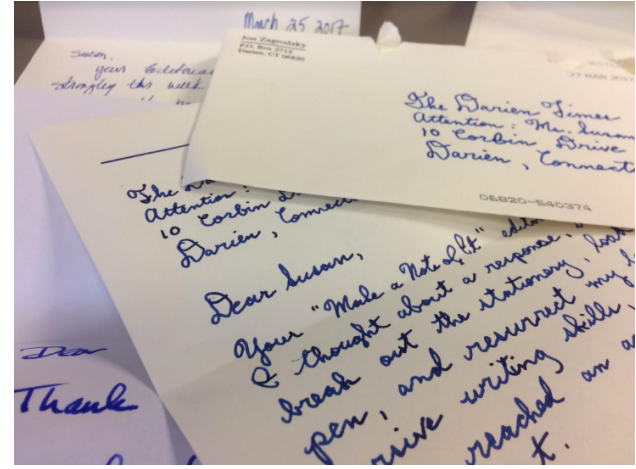 March 25 2017
Susan,
your
this week
Jon Zagrodzky
P.O. Box 2715
Darien, CT 06820
27 MAR 2017
The Darien Times
Attention: Ms. Susan
10 Corbin Drive
Darien, Connect
06820-540374
The Da
Attention:
10 Corbin D
Darien, Connec
Dear Susan,
Your "Make a Note of It" edito
I thought about a response,
break out the stationery,
pen, and resurrect my
rsive writing skills,
reached an a
t.
Dear
Thank